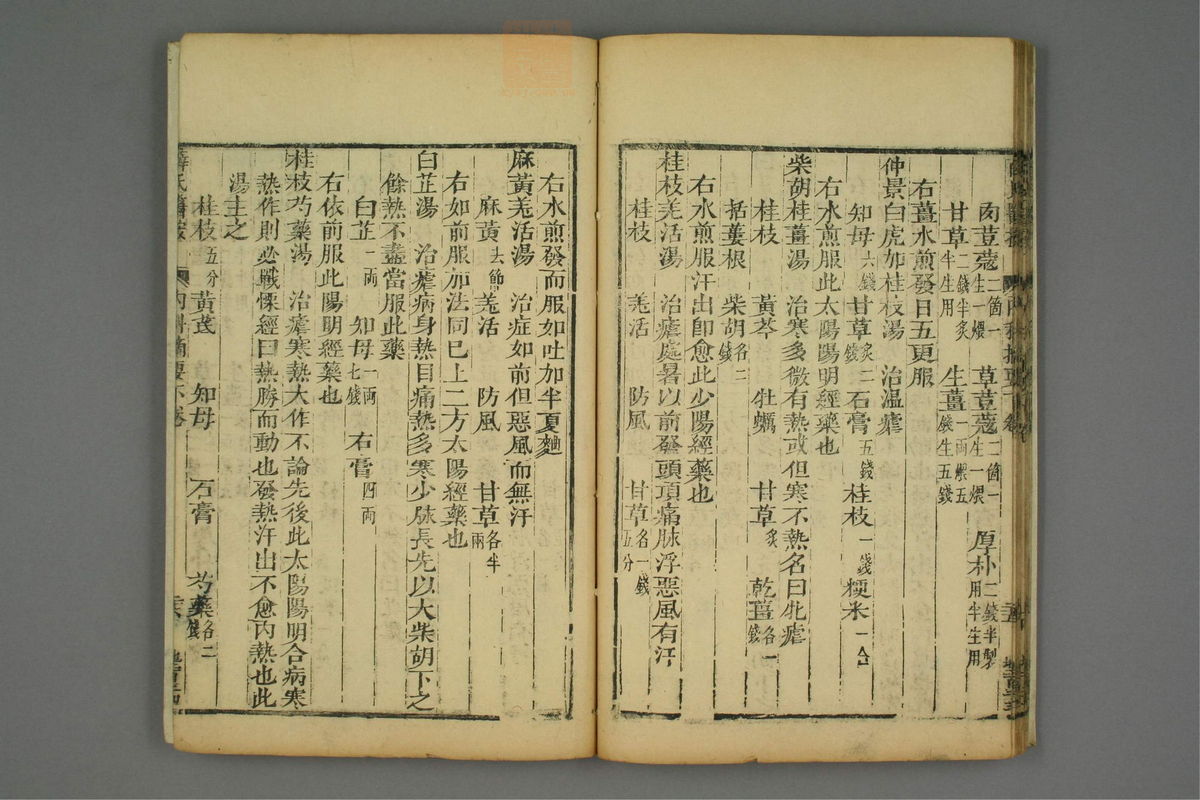 肉荳蔻二箇一生一煨　草荳蔻二箇一生一煨　厚朴二錢半製用半生用
甘草二錢半炙半生用　生薑一兩煨五錢生五錢
右薑水煎發日五更服
仲景白虎加桂枝湯　治溫瘧
知母六錢　甘草炙二錢　石膏五錢　桂枝一錢　粳米一合
右水煎服此太陽陽明經藥也
柴胡桂薑湯　治寒多微有熱或但寒不熱名曰牝瘧
桂枝　黃芩　牡蠣　甘草炙　乾薑各一錢
括蔞根　柴胡各二錢
右水煎服汗出卽愈此少陽經藥也
桂枝羌活湯　治瘧處暑以前發頭項痛脉浮惡風有汗
桂枝　羌活　防風　甘草各一錢五分
右水煎發而服如吐加半夏麯
麻黃羌活湯　治症如前但惡風而無汗
麻黃去節　羌活　防風　甘草各半兩
右如前服加法同已上二方太陽經藥也
白芷湯　治瘧病身熱目痛熱多寒少脉長先以大柴胡下之
餘熱不盡當服此藥
白芷一兩　知母一兩七錢　石膏四兩
右依前服此陽明經藥也
桂枝芍藥湯　治瘧寒熱大作不論先後此太陽陽明合病寒
熱作則必戰慄經曰熱勝而動也發熱汗出不愈內熱也此
湯主之
桂枝五分　黃芪　知母　石膏　芍藥各二錢
薛氏醫按　內科摘要下卷